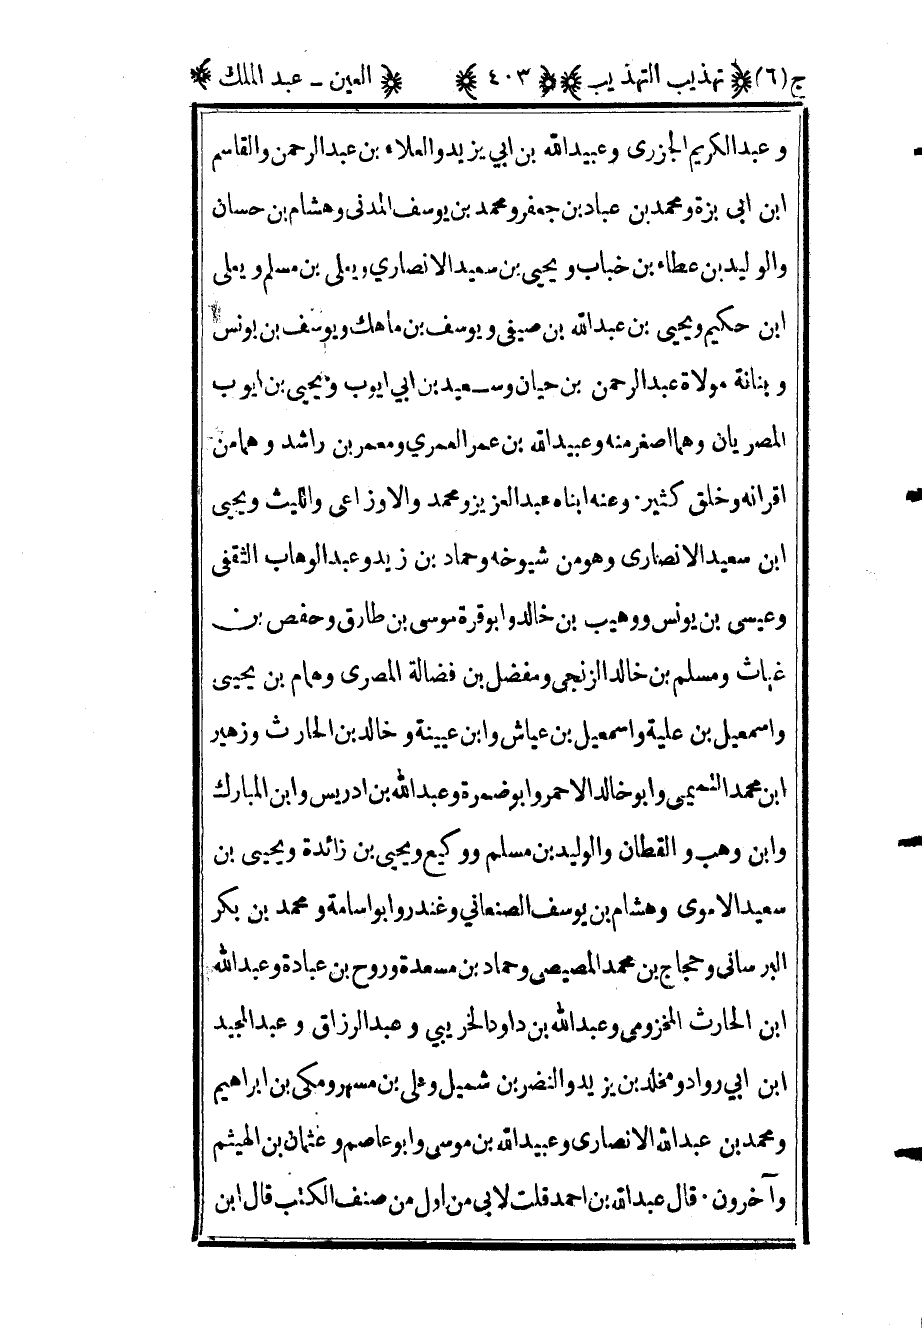 ج(٦) تهذيب التهذيب ٤٠٣ العين ـ عبد الملك
و عبدالكريم الجزرى وعبيدالله بن ابي يزيد والعلاء بن عبدالرحمن والقاسم
ابن ابى بزة ومحمد بن عباد بن جعفر ومحمد بن يوسف المدنى وهشام بن حسان
والوليد بن عطاء بن خباب ويحيى بن سعيد الانصاري ويعلى بن مسلم ويعلى
ابن حكيم ويحيى بن عبدالله بن صيفى ويوسف بن ماهك ويوسف بن يونس
وبنانة مولاة عبدالرحمن بن حيان وسعيد بن ابي ايوب ويحيى بن ايوب
المصريان وهما اصغر منه وعبيدالله بن عمر العمري ومعمر بن راشد وهما من
اقرانه وخلق كثير٠ وعنه ابناه عبدالعزيز ومحمد والاوزاعى والليث ويحيى
ابن سعيد الانصارى وهو من شيوخه وحماد بن زيد وعبدالوهاب الثقفى
وعيسى بن يونس ووهيب بن خالد وابو قرة موسى بن طارق وحفص بن
غياث ومسلم بن خالد الزنجى ومفضل بن فضالة المصرى وهمام بن يحيى
واسمعيل بن علية واسمعيل بن عياش وابن عيينة وخالد بن الحارث وزهير
ابن محمد التميمى وابو خالد الاحمر وابو ضمرة وعبدالله بن ادريس وابن المبارك
وابن وهب و القطان والوليد بن مسلم ووكيع ويحيى بن زائدة ويحيى بن
سعيد الاموى وهشام بن يوسف الصنعاني وغندر وابو اسامة ومحمد بن بكر
البرسانى وحجاج بن محمد المصيصى وحماد بن مسعدة وروح بن عبادة وعبدالله
ابن الحارث المخزومى وعبدالله بن داود الخريبي وعبدالرزاق وعبدالمجيد
ابن ابي رواد ومخلد بن يزيد والنضر بن شميل وعلى بن مسهر ومكى بن ابراهيم
ومحمد بن عبدالله الانصارى وعبيدالله بن موسى وابو عاصم وعثمان بن الهيثم
وآخرون٠ قال عبدالله بن احمد قلت لابي من اول من صنف الكتب قال ابن